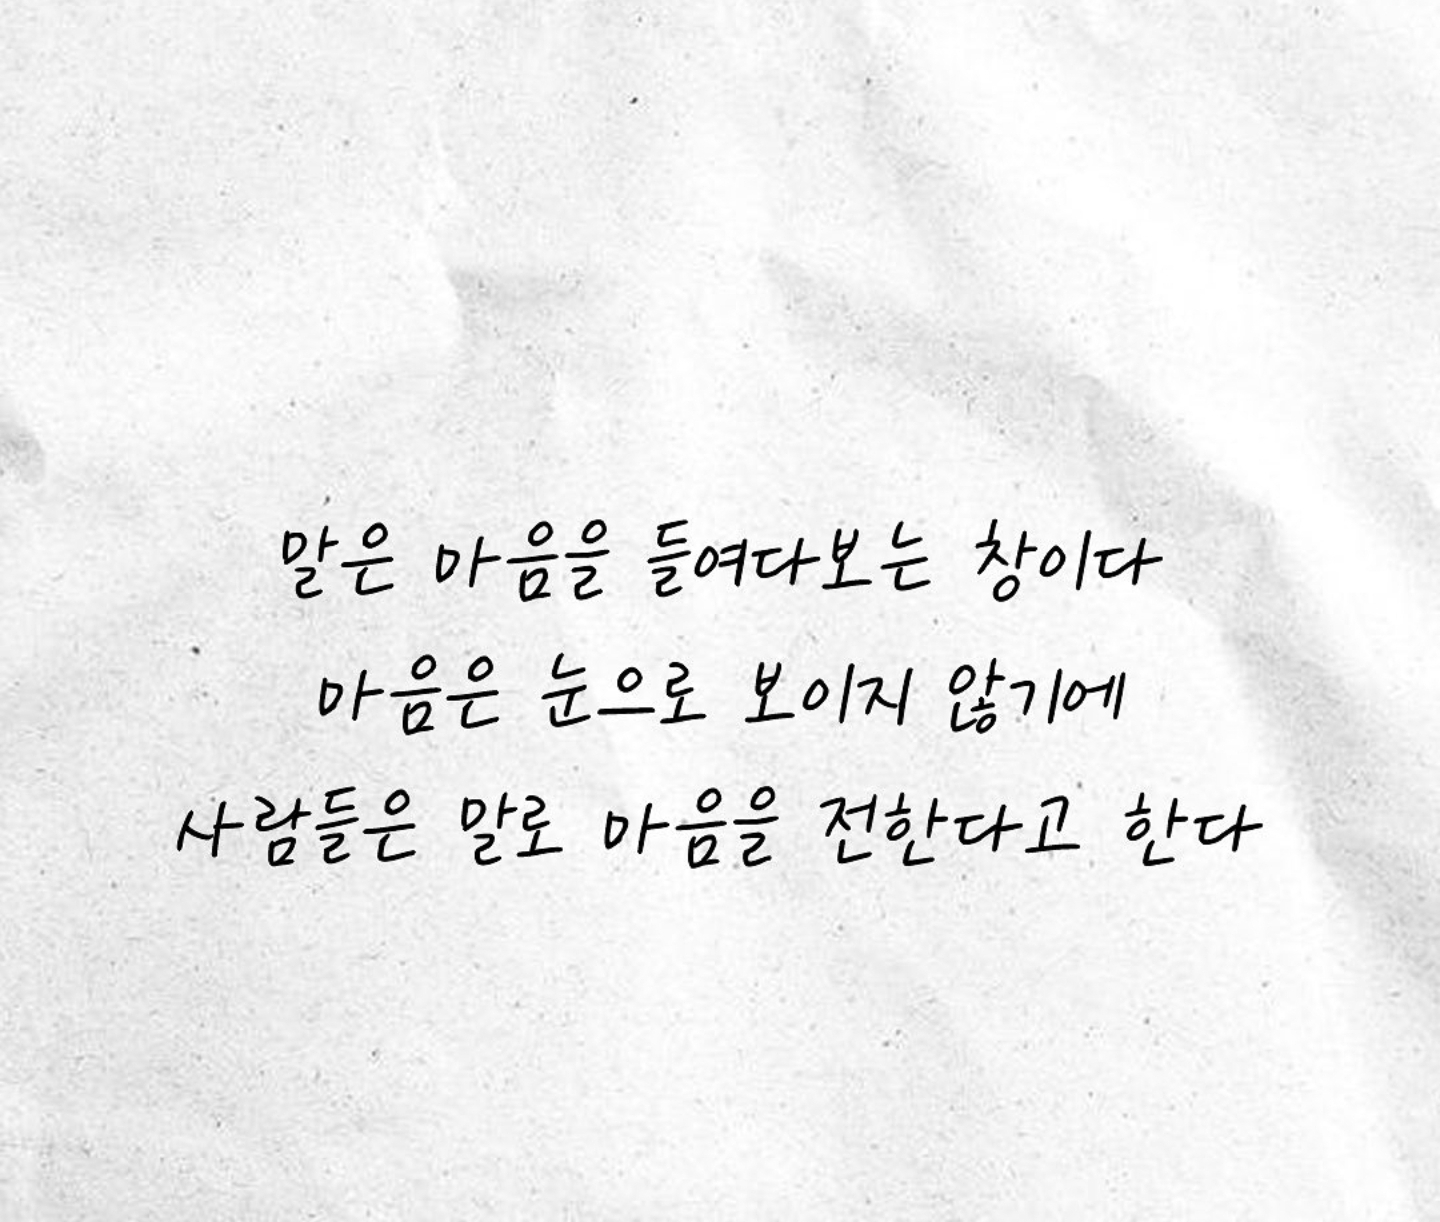 말은 마음을 들여다보는 창이다
마음은 눈으로 보이지 않기에
사람들은 말로 마음을 전한다고 한다